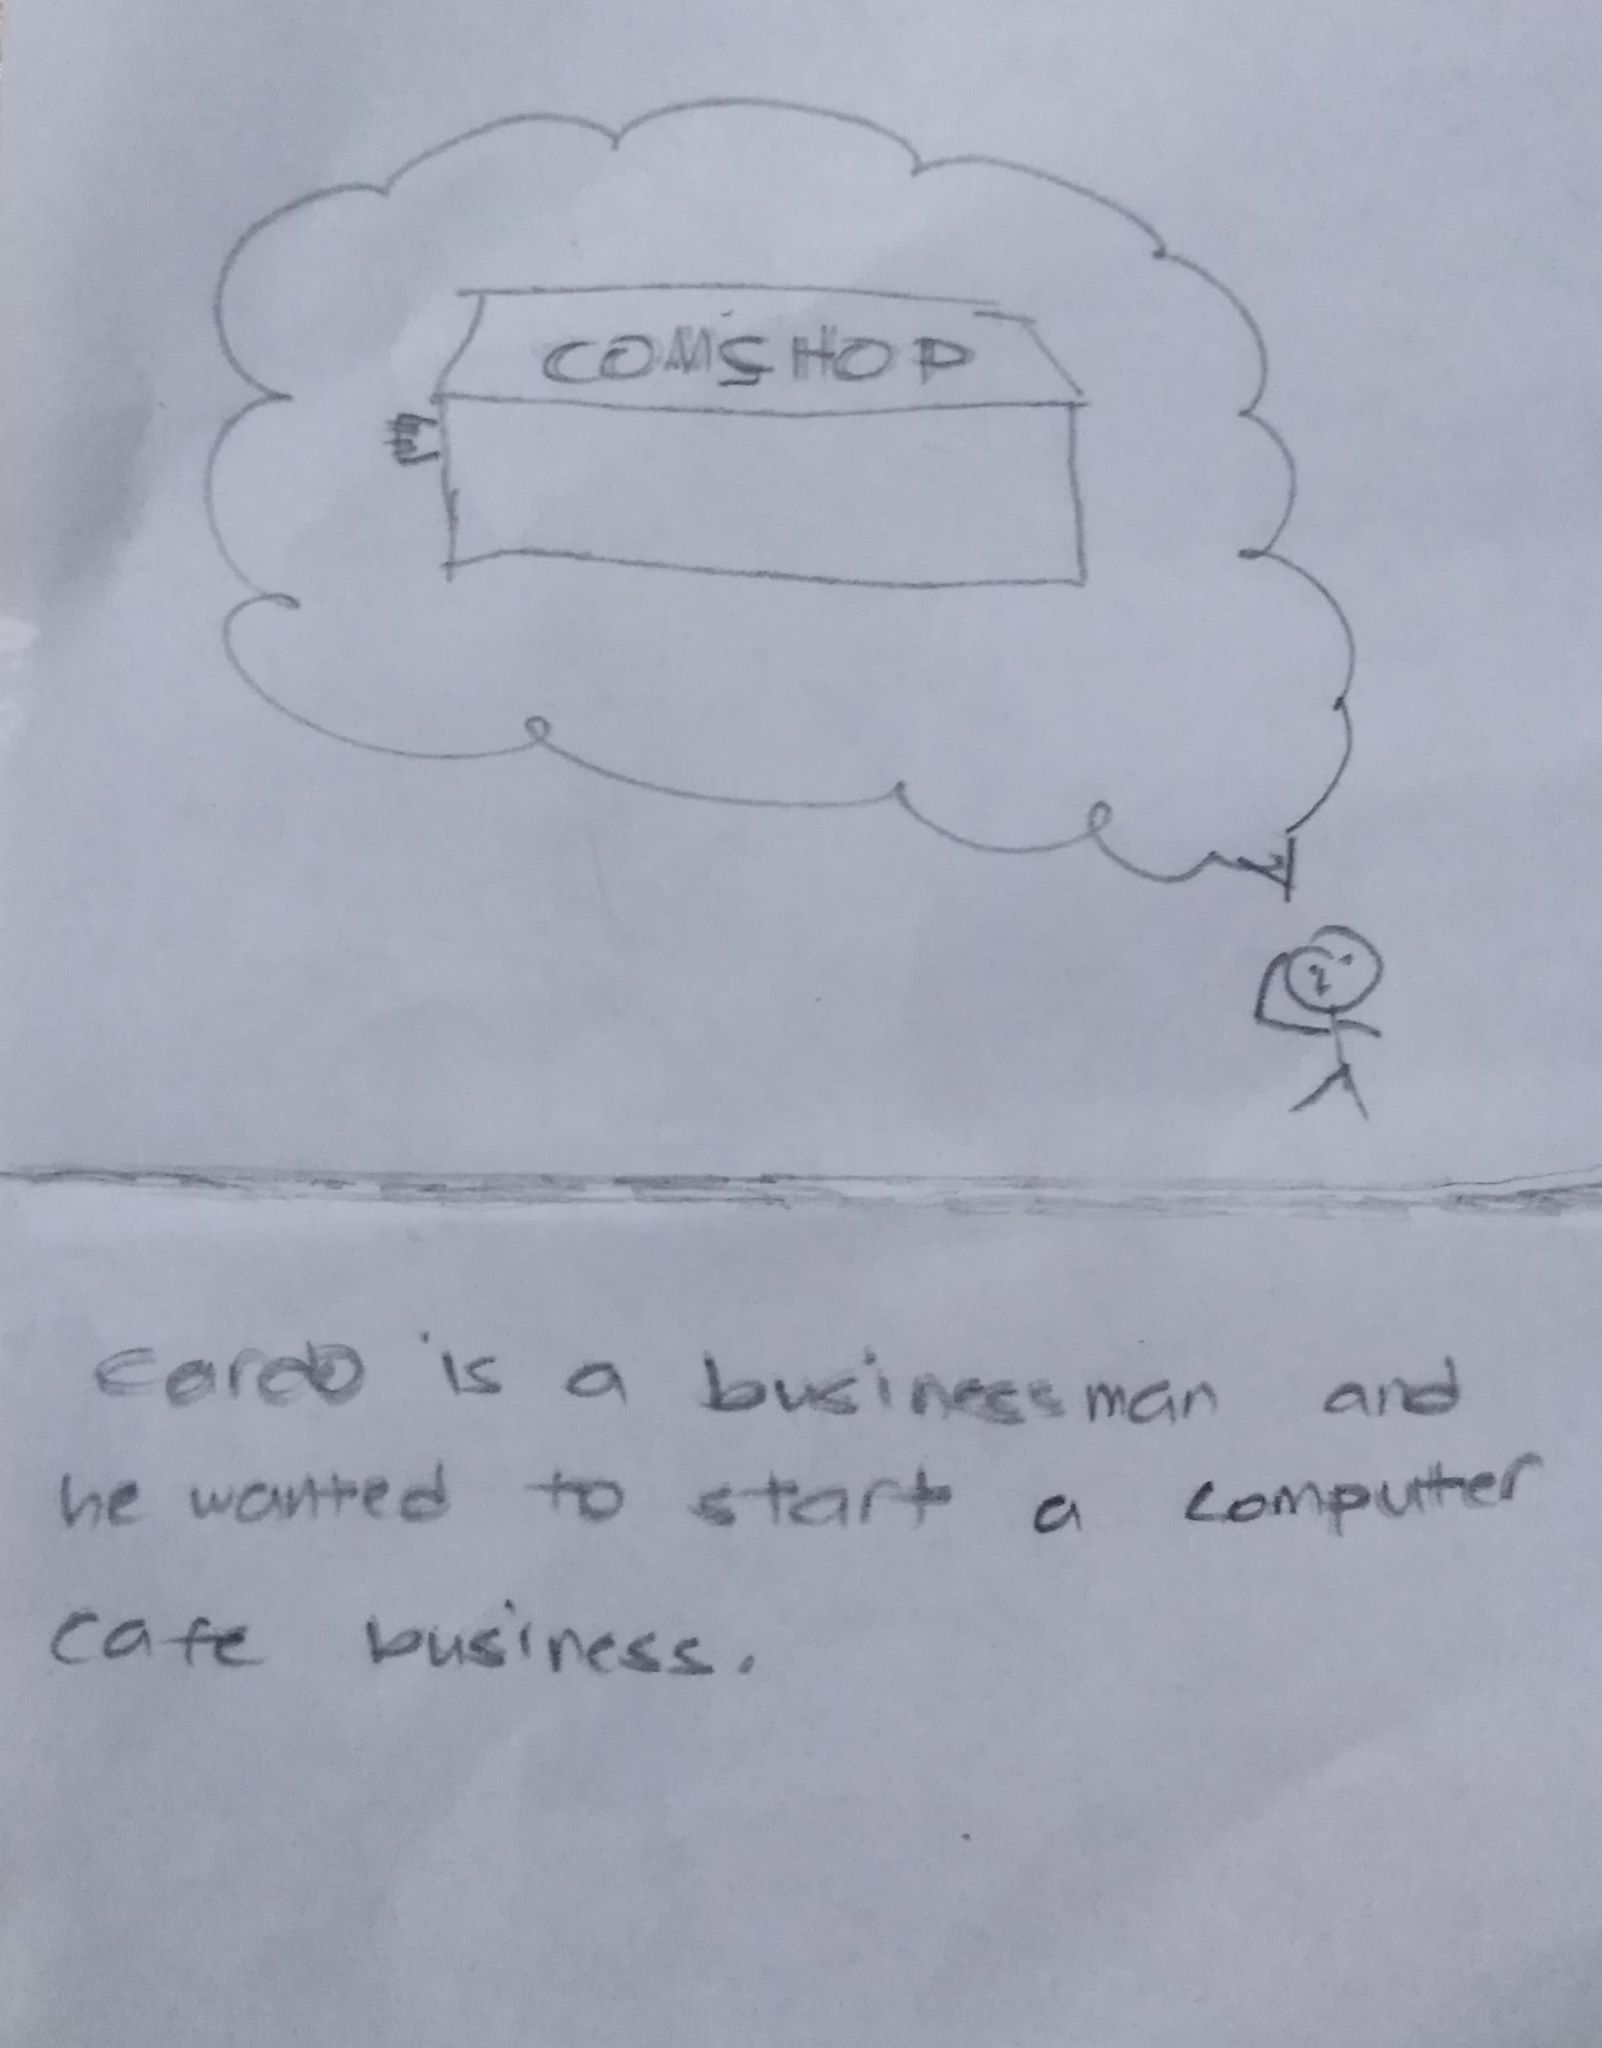 COMSHOP
Cardo is a businessman and
he wanted to start a computter
cafe business.